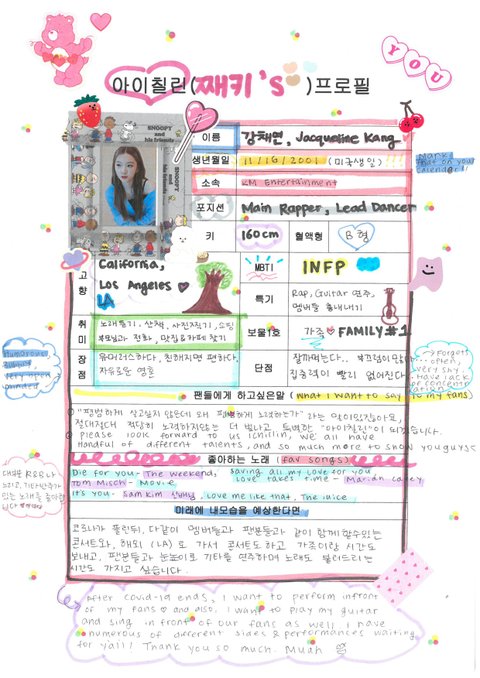 YOU
아이칠린(째키's)프로필
SNOOPY
and
his friends
이름
강채연, Jacqueline Kang
생년월일
11/16/2001 (미국생일)
Mark
that on your
calendar!
소속
KM Entertainment
포지션
Main Rapper, Lead Dancer
키
160cm
혈액형
B형
고향
California,
Los Angeles
LA
MBTI
INFP
특기
Rap, Guitar 연주,
멤버들 흉내내기
취미
노래듣기, 산책, 사진찍기, 쇼핑
부모님과 전화, 맛집&카페 찾기
보물1호
가족 FAMILY #1
장점
유머러스하다, 친해지면 편하다,
자유로운 영혼
단점
잘까먹는다..
집중력이 빨리 없어진다
Humorous,
very open
minded
Forgets
often,
very shy,
have lack
of concentration
팬들에게 하고싶은말 (What I want to say to my fans)
"평범하게 살고싶지 않은데 왜 평범하게 노력하는가" 라는 말이있잖아요,
절대적대 적당히 노력하지않는 더 빛나고 특별한 "아이칠린"이 되겠습니다.
Please look forward to us ichillin, we all have
handful of different talents, and so much more to show you guys
좋아하는 노래 (fav songs)
대체로 R&B나
소리, 기타반주가
있는 노래를 좋아합
니다
Die for you- The weekend, saving all my love for you
Tom Misch- Movie, Love takes time- Mariah carey
It's you- Sam Kim, Love me like that, The juice
미래에 내모습을 예상한다면
코로나가 풀린뒤, 다같이 멤버들과 팬분들과 같이 함께 할수있는
콘서트와, 해외 (LA)로 가서 콘서트도하고 가족이랑 시간도
보내고, 팬분들과 눈높이로 기타를 연주하며 노래도 불러드리는
시간도 가지고 싶습니다.
After covid-19 ends, I want to perform infront
of my fans and also, I want to play my guitar
and sing in front of our fans as well. I have
numerous of different sides & performances waiting
for yall! Thank you so much. Muah